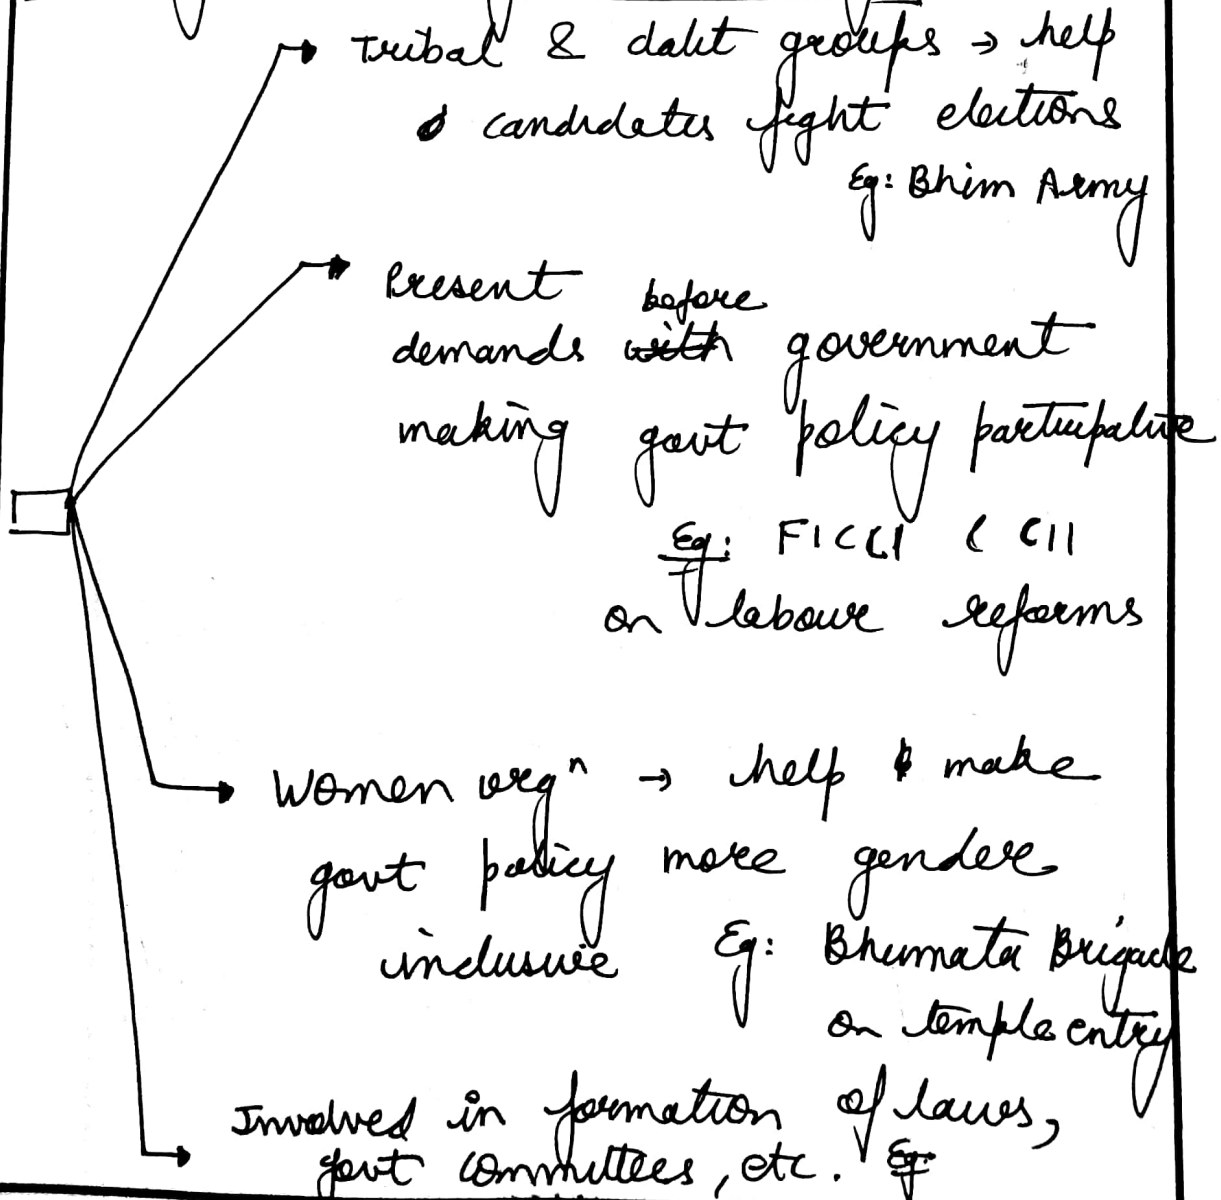 Tribal & dalit groups → help
candidates fight elections
Eg: Bhim Army
Present before
demands with government
making govt policy participative
Eg: FICCI & CII
on labour reforms
Women orgⁿ → help make
govt policy more gender
inclusive Eg: Bhumata Brigade
on temple entry
Involved in formation of laws,
govt committees, etc. Eg: